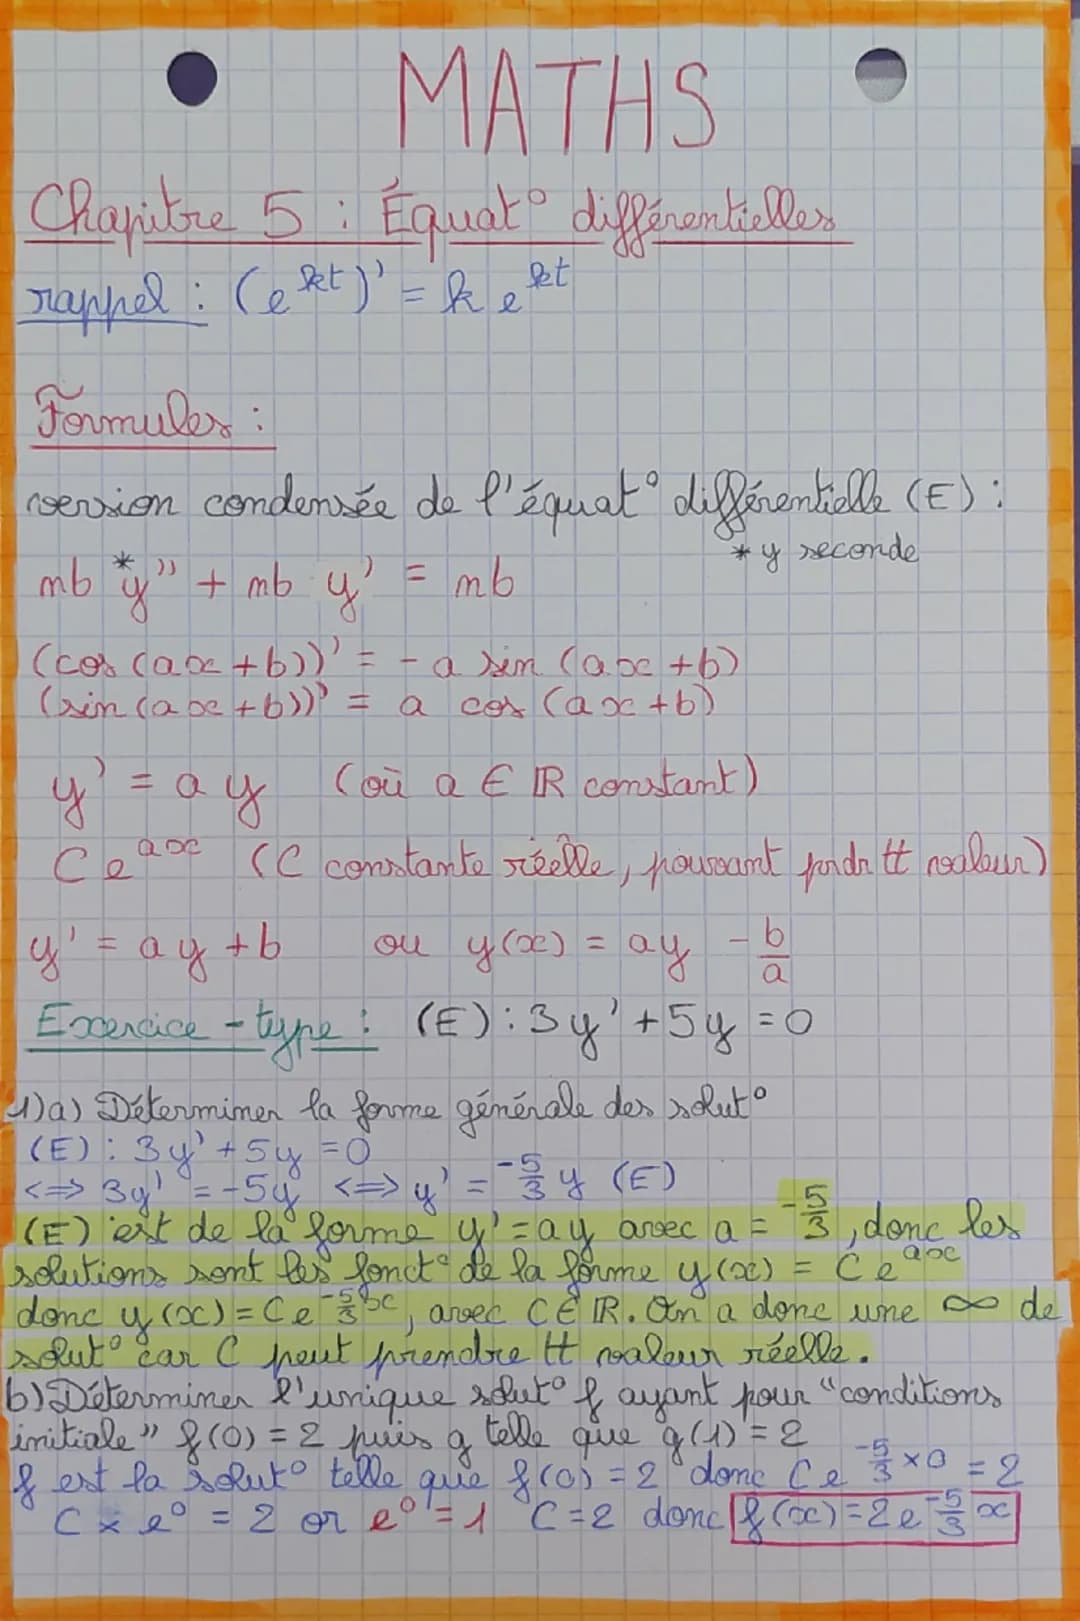 MATHS
Chapitre 5 : Équat° différentielles
rappel : (e^kt)' = k e^kt
Formules :
version condensée de l'équat° différentielle (E) :
* y seconde
nb *y'' + nb y' = nb
(cos (ax+b))' = - a sin (ax+b)
(sin (ax+b))' = a cos (ax+b)
y' = a y (où a ∈ ℝ constant)
C e^ax (C constante réelle, pouvant prdr tt valeur)
y' = a y + b ou y(x) = ay - b/a
Exercice - type : (E) : 3y' + 5y = 0
1)a) Déterminer la forme générale des solut°
(E) : 3y' + 5y = 0
<=> 3y' = -5y <=> y' = -5/3 y (E)
(E) est de la forme y' = ay avec a = -5/3, donc les
solutions sont les fonct° de la forme y(x) = C e^ax
donc y(x) = C e^-5/3x, avec C ∈ ℝ. On a donc une ∞ de
solut° car C peut prendre tt valeur réelle.
b) Déterminer l'unique solut° f ayant pour "conditions
initiale" f(0) = 2 puis g telle que g(1) = 2
f est la solut° telle que f(0) = 2 donc C e^-5/3 × 0 = 2
C × e^0 = 2 or e^0 = 1 C = 2 donc f(x) = 2 e^-5/3 x